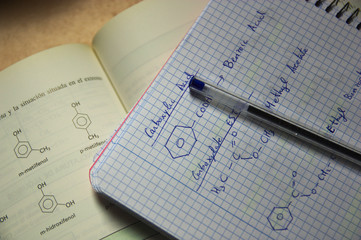 o y la situación situada en el extremo
OH
CH₃
m-metilfenol
OH
CH₃
p-metilfenol
OH
OH
m-hidroxifenol
OH
Carboxylic Acid
COOH
→ Benzoic Acid
Carboxylate
H₃C
C
O
O
CH₃
Methyl Acetate
C
O
O
CH₃
Ethyl